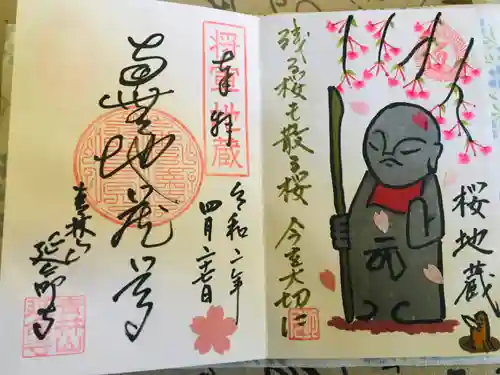 残る桜も散る桜
今を大切に
桜地蔵
将軍地蔵
奉拝
令和二年
四月二七日
南無地蔵尊
青林山
延命寺